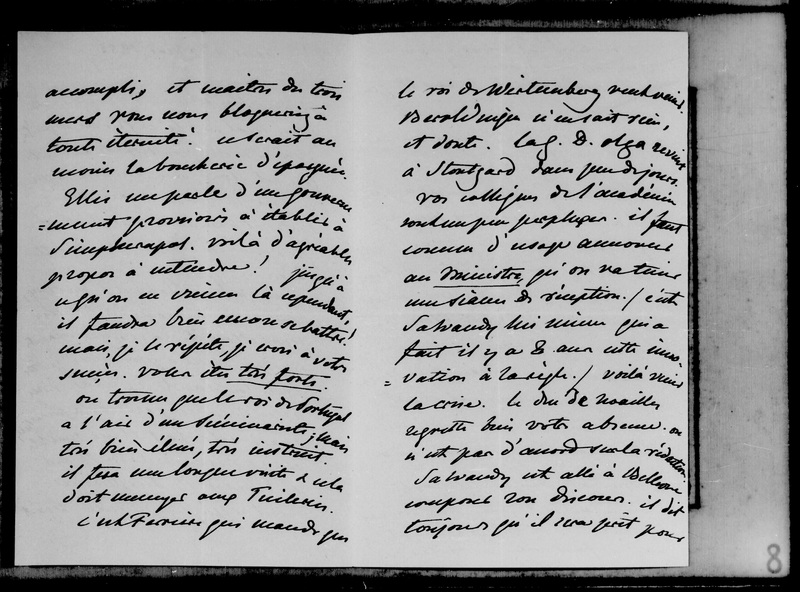 accompli, et maîtres des trois
mers vous nous bloqueriez à
toute éternité! ce serait au
moins la boucherie d'épargnée.
Ellis me parle d'un gouverne
=ment provisoire à établir à
Simpheropol. voilà d'agréables
propos à entendre! jusqu'à
ce qu'on en vienne là cependant,
il faudra bien encore se battre!
mais, je le répète, je crois à votre
succès. vous êtes très forts.
on trouve que le roi de Portugal
a l'air d'un séminariste, mais
très bien élevé, très instruit.
il fera une longue visite & cela
doit ennuyer aux Tuileries.
c'est Ferrière qui mande que
le roi de Wurtemberg veut venir.
Beroldingen n'en sait rien,
et doute. la g. D. Olga revient
à Stoutgard dans peu de jours.
vos collègues de l'académie
sont un peu perplexes. il faut
comme d'usage annoncer
au Ministre, qu'on va tenir
une séance de réception. / c'est
Salvandy lui même qui a
fait il y a 8 ans cette inno
=vation à la règle. / voilà
la crise. le duc de Noailles
regrette bien votre absence. on
n'est pas d'accord sur la rédaction.
Salvandy est allé à Bellevue
composer son discours. il dit
toujours qu'il sera prêt pour
8